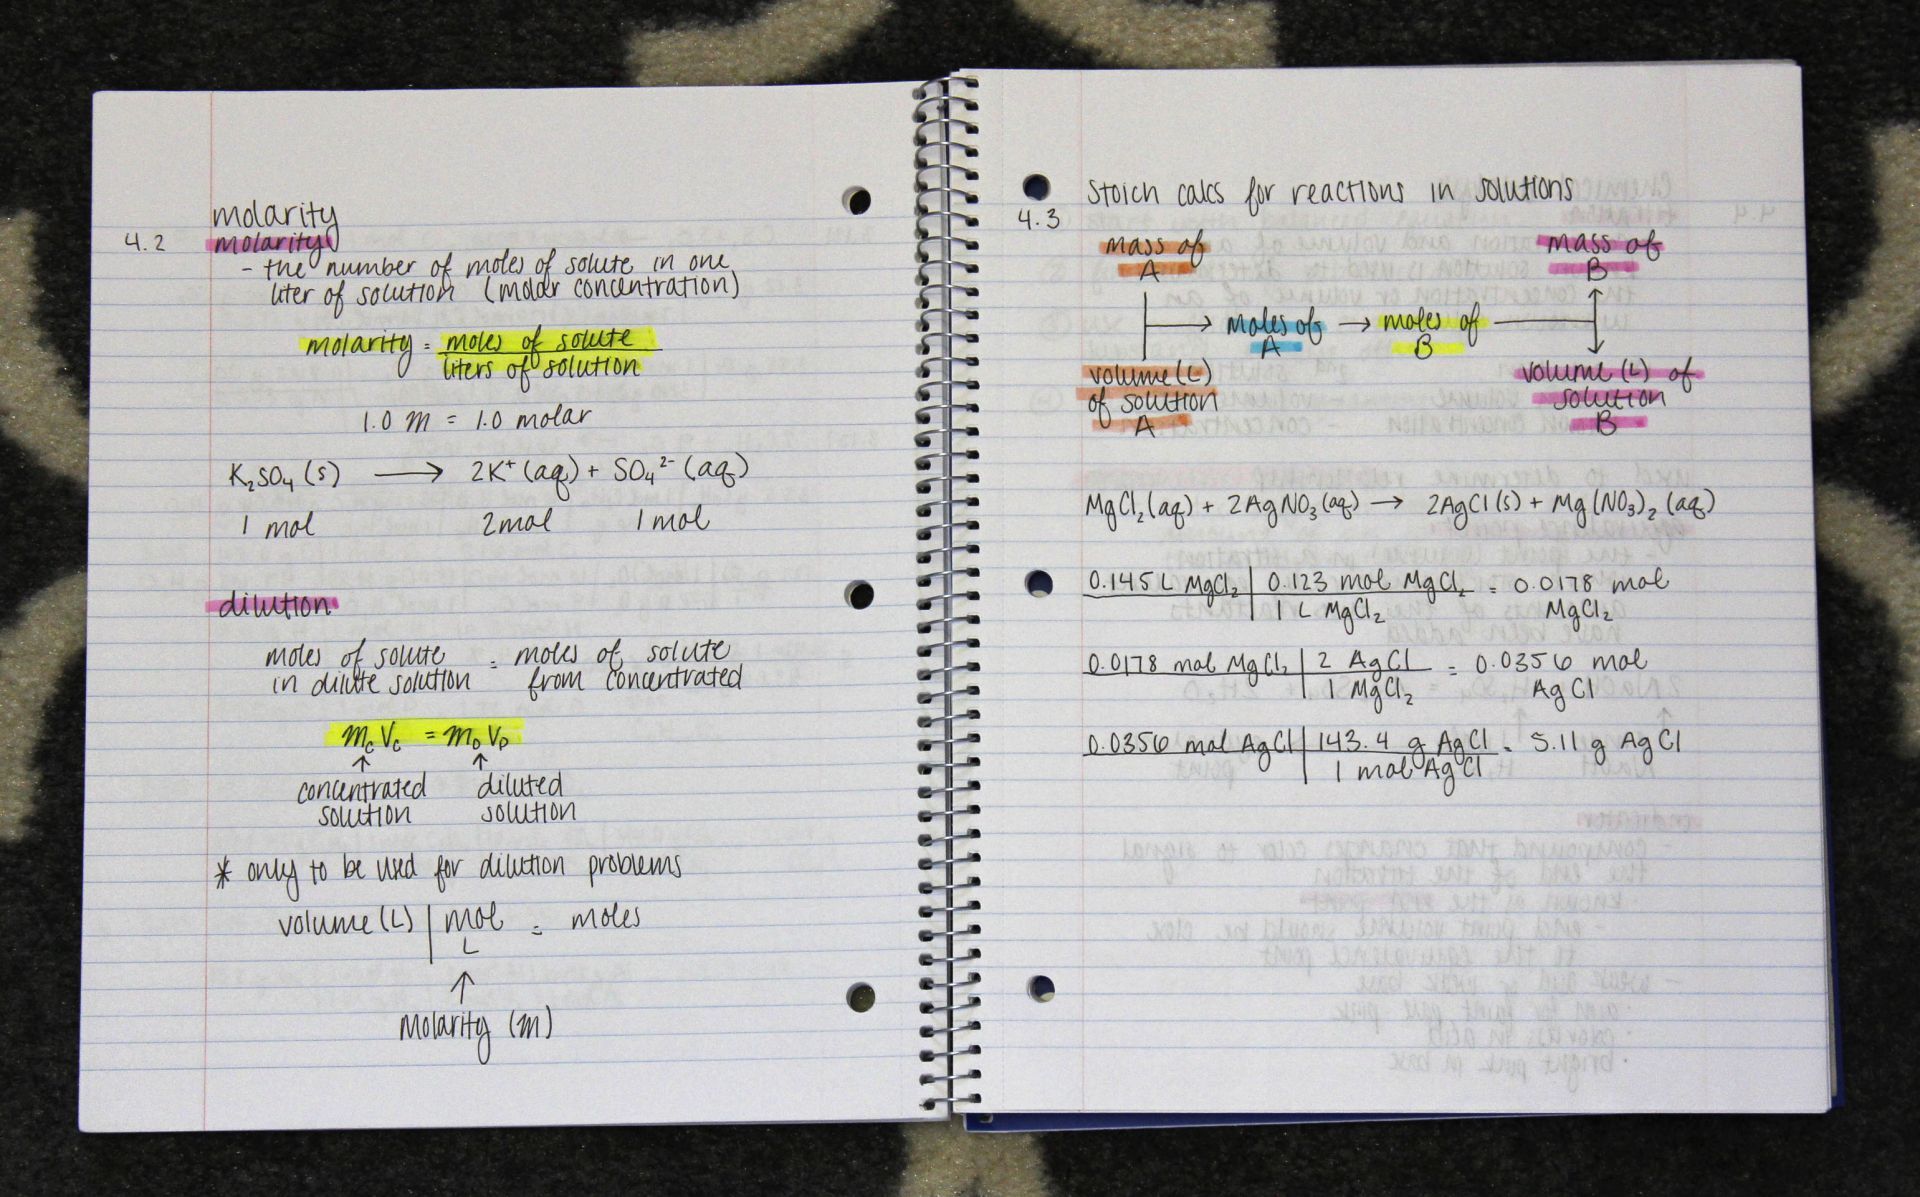 molarity
4.2 molarity
- the number of moles of solute in one
liter of solution (molar concentration)
molarity = moles of solute
liters of solution
1.0 M = 1.0 molar
K₂SO₄ (s) → 2K⁺ (aq) + SO₄²⁻ (aq)
1 mol 2 mol 1 mol
dilution
moles of solute = moles of solute
in dilute solution from concentrated
McVc = MDVD
↑ ↑
concentrated diluted
solution solution
* only to be used for dilution problems
volume (L) | mol = moles
L
↑
Molarity (M)
Stoich calcs for reactions in solutions
4.3
mass of mass of
A B
→ moles of → moles of
A B
volume (L) volume (L) of
of solution solution
A B
MgCl₂ (aq) + 2AgNO₃ (aq) → 2AgCl (s) + Mg(NO₃)₂ (aq)
0.145 L MgCl₂ | 0.123 mol MgCl₂ = 0.0178 mol
1 L MgCl₂ MgCl₂
0.0178 mol MgCl₂ | 2 AgCl = 0.0356 mol
1 MgCl₂ AgCl
0.0356 mol AgCl | 143.4 g AgCl = 5.11 g AgCl
1 mol AgCl